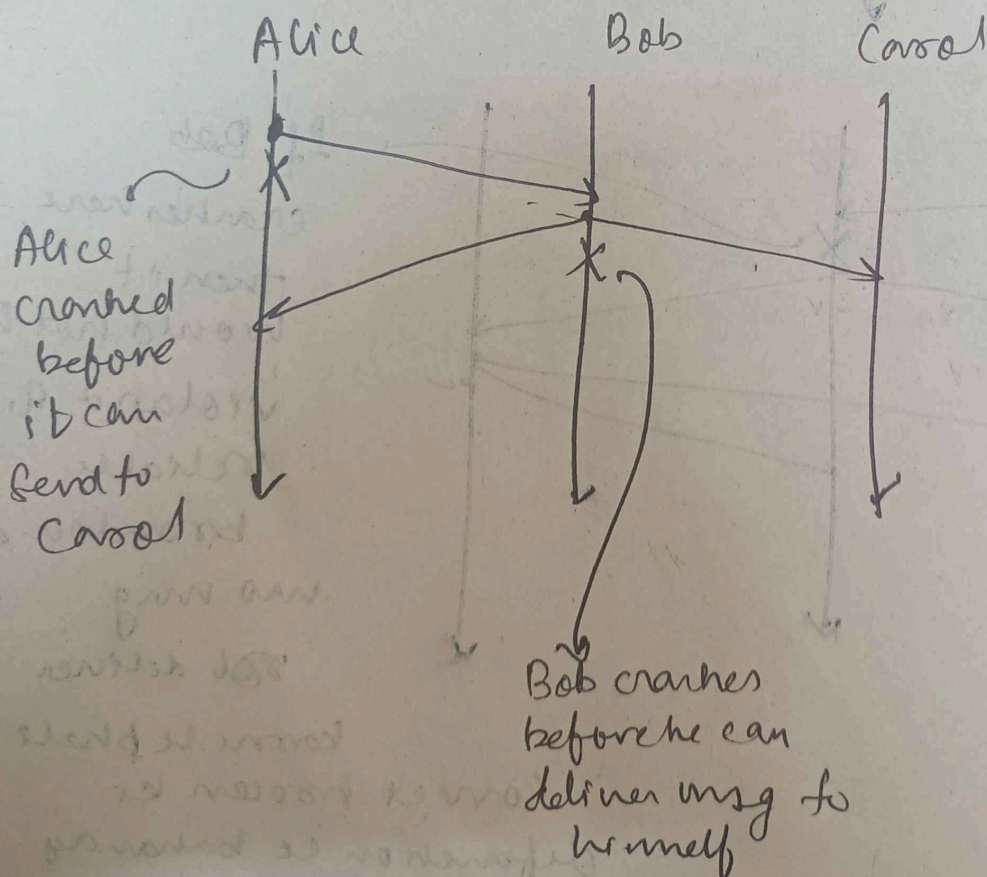 Alice
Bob
Carol
Alice
crashed
before
it can
send to
Carol
Bob crashes
before he can
deliver msg to
himself